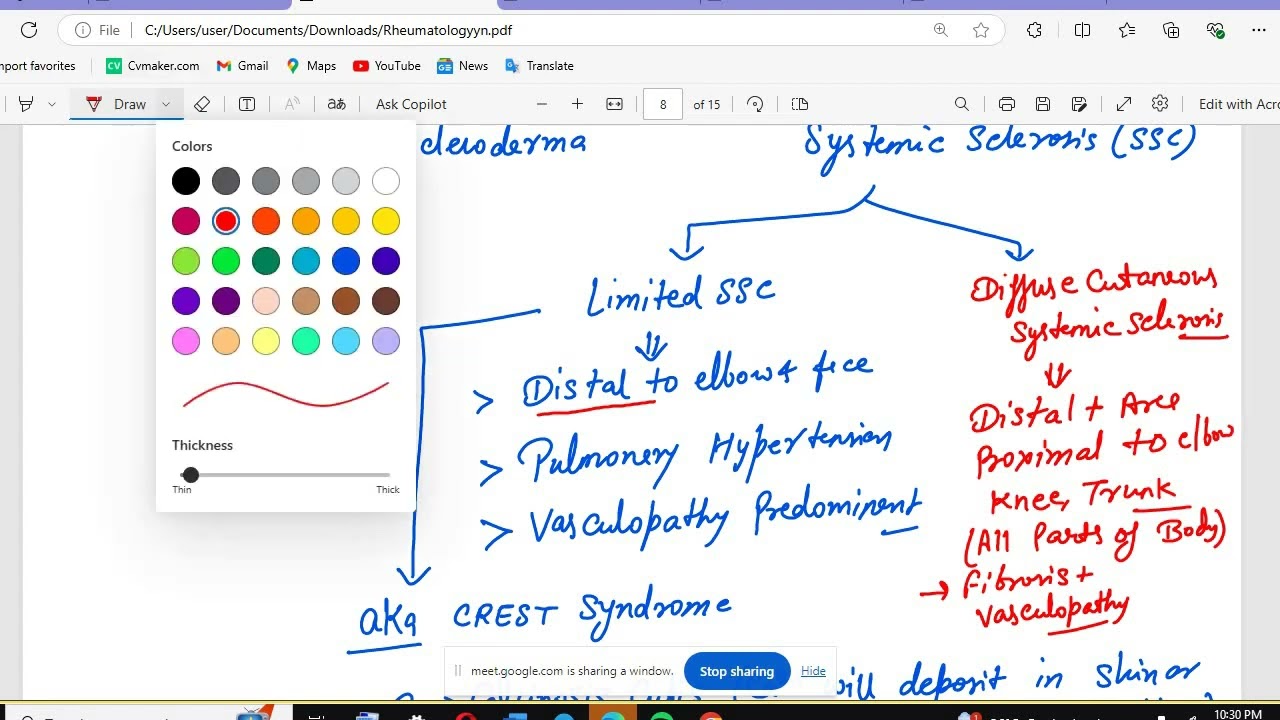 File C:/Users/user/Documents/Downloads/Rheumatologyyn.pdf
mport favorites Cvmaker.com Gmail Maps YouTube News Translate
Draw Ask Copilot 8 of 15 Edit with Acro
Colors
Thickness
Thin Thick
cleroderma
Systemic Sclerosis (SSC)
Limited SSC
> Distal to elbow & face
> Pulmonary Hypertension
> Vasculopathy Predominent
aka CREST Syndrome
Diffuse Cutaneous
Systemic Sclerosis
Distal + Area
Proximal to elbow
Knee, Trunk
(All Parts of Body)
→ Fibrosis +
Vasculopathy
meet.google.com is sharing a window. Stop sharing Hide
will deposit in skin or
10:30 PM